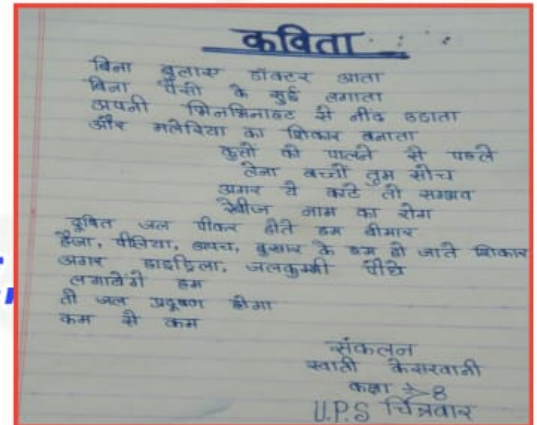 कविता
बिना बुलाए डॉक्टर आता
बिना पैसों के सुई लगाता
अपनी भिनभिनाहट से नींद उडाता
और मलेरिया का शिकार बनाता
कुत्तों को पालने से पहले
लेना बच्चों तुम सोच
अगर ये काटे तो सम्भव
रेबीज नाम का रोग
दूषित जल पीकर होते हम बीमार
हैजा, पीलिया, अपच, बुखार के हम हो जाते शिकार
अगर हाइड्रिला, जलकुम्भी पौधे
लगायेंगे हम
तो जल प्रदूषण होगा
कम से कम
संकलन
स्वाती केसरवानी
कक्षा ⇒ 8
U.P.S चित्रवार